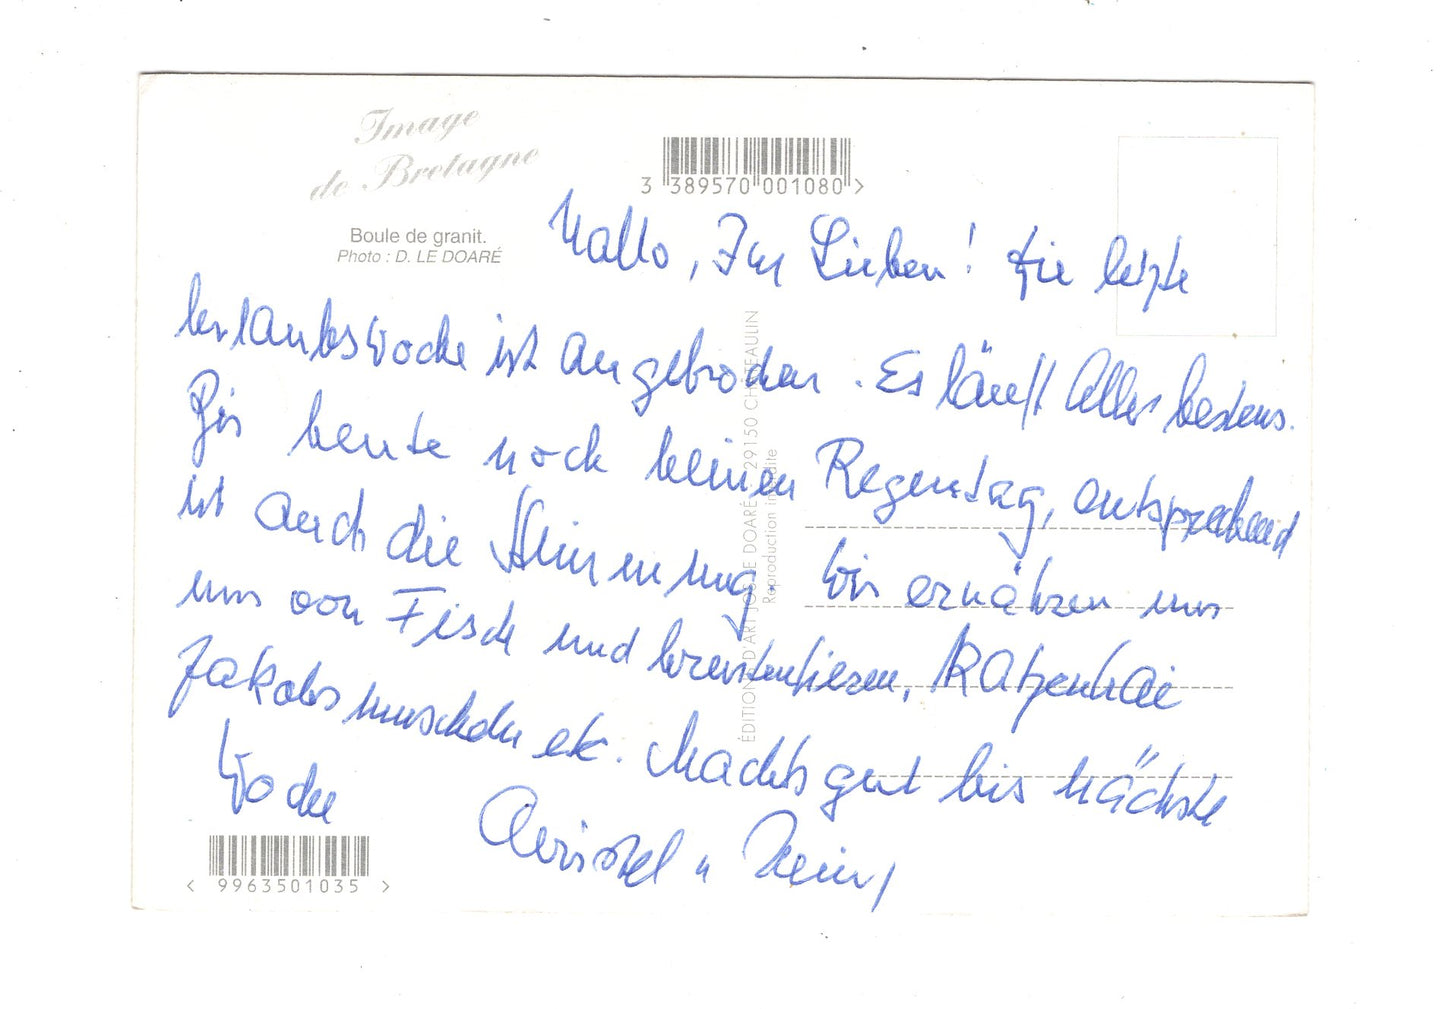 Image
de Bretagne
Boule de granit.
Photo : D. LE DOARÉ
3 389570 001080 >
Hallo, Ihr Lieben! Die letzte
Urlaubswoche ist angebrochen. Es läuft Alles bestens.
Bis heute noch keinen Regentag, entsprechend
ist auch die Stimmung. Wir ernähren uns
uns von Fisch und Krustentieren, Katzenhai
Jakobsmuscheln etc. Machts gut bis nächste
Woche
Christel u Heinz
ÉDITIONS D'ART JOS LE DOARÉ - 29150 CHATEAULIN
Reproduction interdite
< 9963501035 >